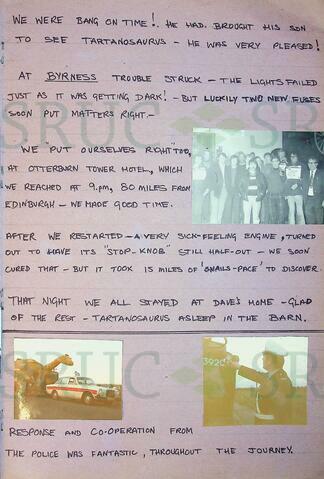 WE WERE BANG ON TIME! HE HAD BROUGHT HIS SON
TO SEE TARTANOSAURUS - HE WAS VERY PLEASED!
AT BYRNESS TROUBLE STRUCK - THE LIGHTS FAILED
JUST AS IT WAS GETTING DARK! - BUT LUCKILY TWO NEW FUSES
SOON PUT MATTERS RIGHT. -
WE "PUT OURSELVES RIGHT" TOO,
AT OTTERBURN TOWER HOTEL, WHICH
WE REACHED AT 9.pm, 80 MILES FROM
EDINBURGH - WE MADE GOOD TIME.
AFTER WE RESTARTED - A VERY SICK-FEELING ENGINE, TURNED
OUT TO HAVE ITS "STOP-KNOB" STILL HALF-OUT - WE SOON
CURED THAT - BUT IT TOOK 15 MILES OF 'SNAILS-PACE' TO DISCOVER.
THAT NIGHT WE ALL STAYED AT DAVE'S HOME - GLAD
OF THE REST - TARTANOSAURUS ASLEEP IN THE BARN.
RESPONSE AND CO-OPERATION FROM
THE POLICE WAS FANTASTIC, THROUGHOUT THE JOURNEY.
SRUC
SRUC
SRUC
SRUC
3920